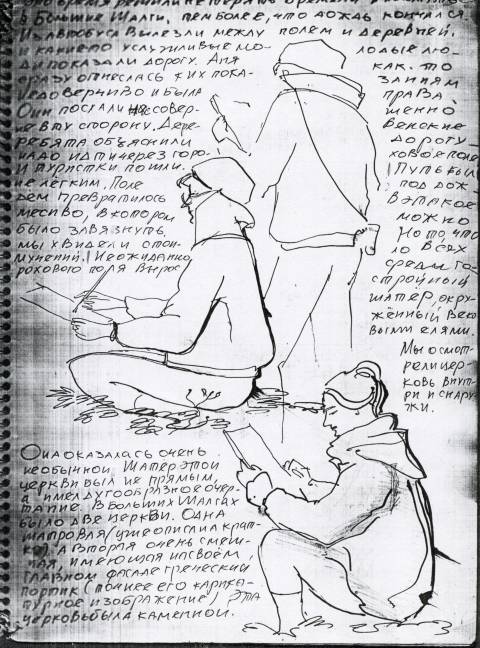 это время решили не терять времени
в Большие Шалги, тем более, что дождь кончился.
Из автобуса вылезли между полем и деревней,
и какие то услужливые мо- лодые лю-
ди показали дорогу. Аня как-то
сразу отнеслась к их пока- заниям
недоверчиво и была права
Они послали нас совер- шенно
не в ту сторону. Дере- венские
ребята объяснили дорогу -
надо идти через горо- ховое поле
и туристы пошли. Путь был
не лёгким. Поле под дож-
дем превратилось в этакое
место, в котором можно
было завязнуть, но то, что
мы увидели стои- ло всех
мучений! Неожиданно среди го-
рохового поля вырос стройный
шатер, окру-
жённый веко-
выми елями.
Мы осмот-
рели цер-
ковь внут-
ри и снару-
жи.
Она оказалась очень
необычной. Шатер этой
церкви был не прямым,
а имел дугообразное очер-
тание. В Больших Шалгах
было две церкви. Одна
шатровая (уже описил крат-
ко), а вторая очень смеш-
ная, имеющая на своём,
главном фасаде греческий
портик (точнее его карика-
турное изображение) Эта
церковь была каменной.